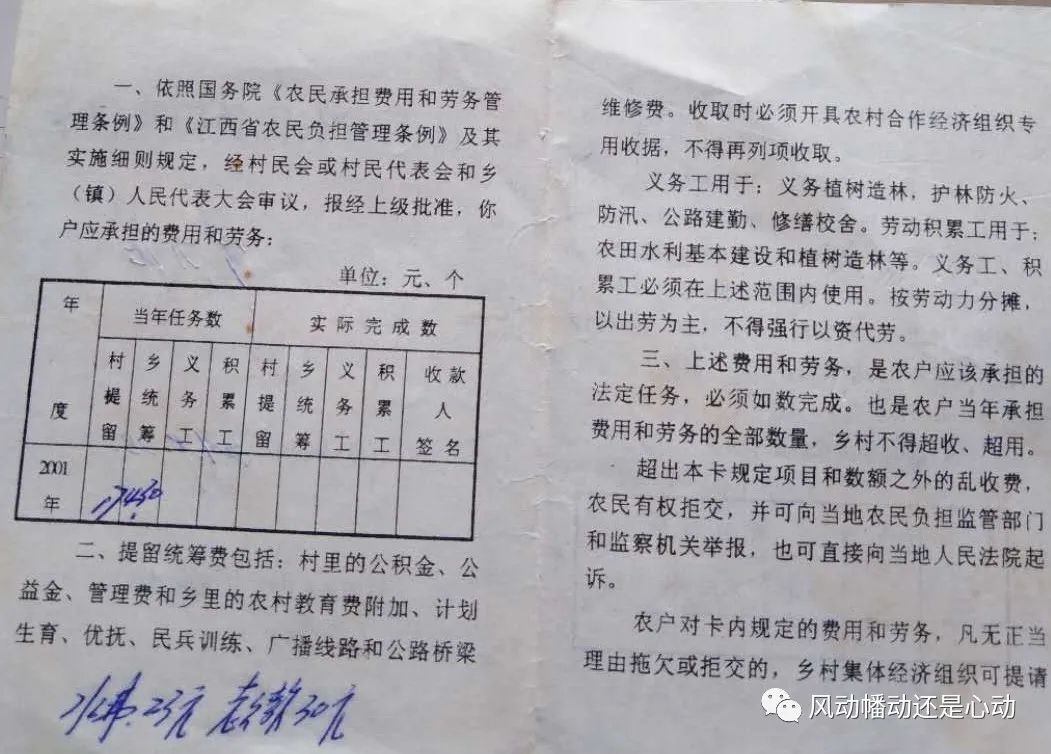 一、依照国务院《农民承担费用和劳务管
理条例》和《江西省农民负担管理条例》及其
实施细则规定，经村民会或村民代表会和乡
（镇）人民代表大会审议，报经上级批准，你
户应承担的费用和劳务：
单位：元、个
年度 当年任务数 实际完成数
村提留 乡统筹 义务工 积累工 村提留 乡统筹 义务工 积累工 收款人签名
2001年
二、提留统筹费包括：村里的公积金、公
益金、管理费和乡里的农村教育费附加、计划
生育、优抚、民兵训练、广播线路和公路桥梁
23元 30元
维修费。收取时必须开具农村合作经济组织专
用收据，不得再列项收取。
义务工用于：义务植树造林，护林防火、
防汛、公路建勤、修缮校舍。劳动积累工用于：
农田水利基本建设和植树造林等。义务工、积
累工必须在上述范围内使用。按劳动力分摊，
以出劳为主，不得强行以资代劳。
三、上述费用和劳务，是农户应该承担的
法定任务，必须如数完成。也是农户当年承担
费用和劳务的全部数量，乡村不得超收、超用。
超出本卡规定项目和数额之外的乱收费，
农民有权拒交，并可向当地农民负担监管部门
和监察机关举报，也可直接向当地人民法院起
诉。
农户对卡内规定的费用和劳务，凡无正当
理由拖欠或拒交的，乡村集体经济组织可提请
风动幡动还是心动